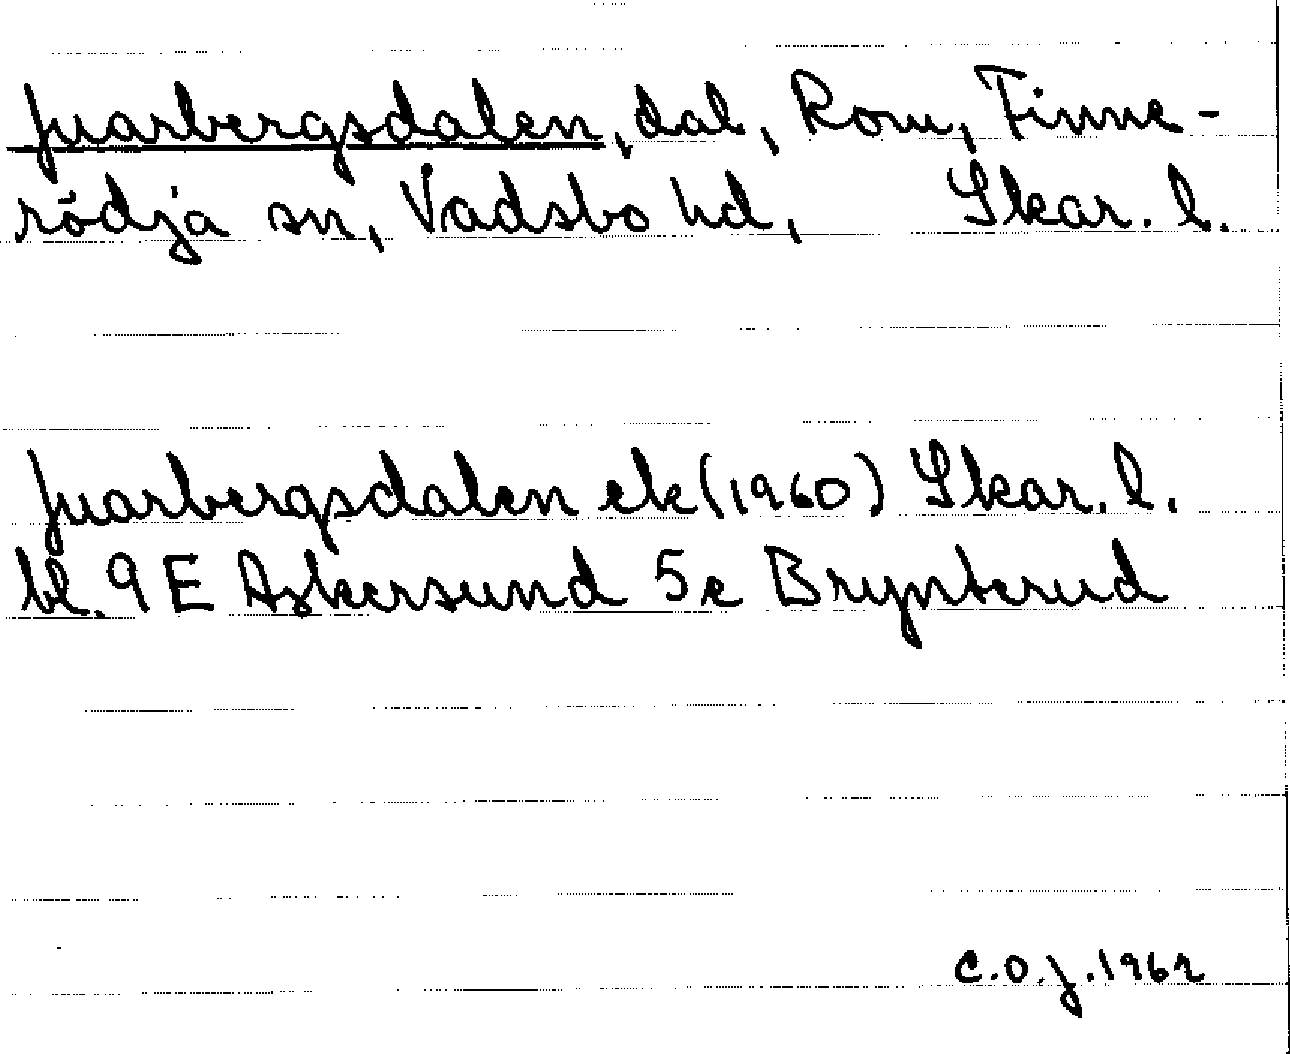 Juarbergsdalen, dal, Rom, Finne-
rödja sn, Vadsbo hd, Skar. l.
Juarbergsdalen ek (1960) Skar. l.
bl. 9 E Askersund 5 e Brynterud
C.O.J. 1962